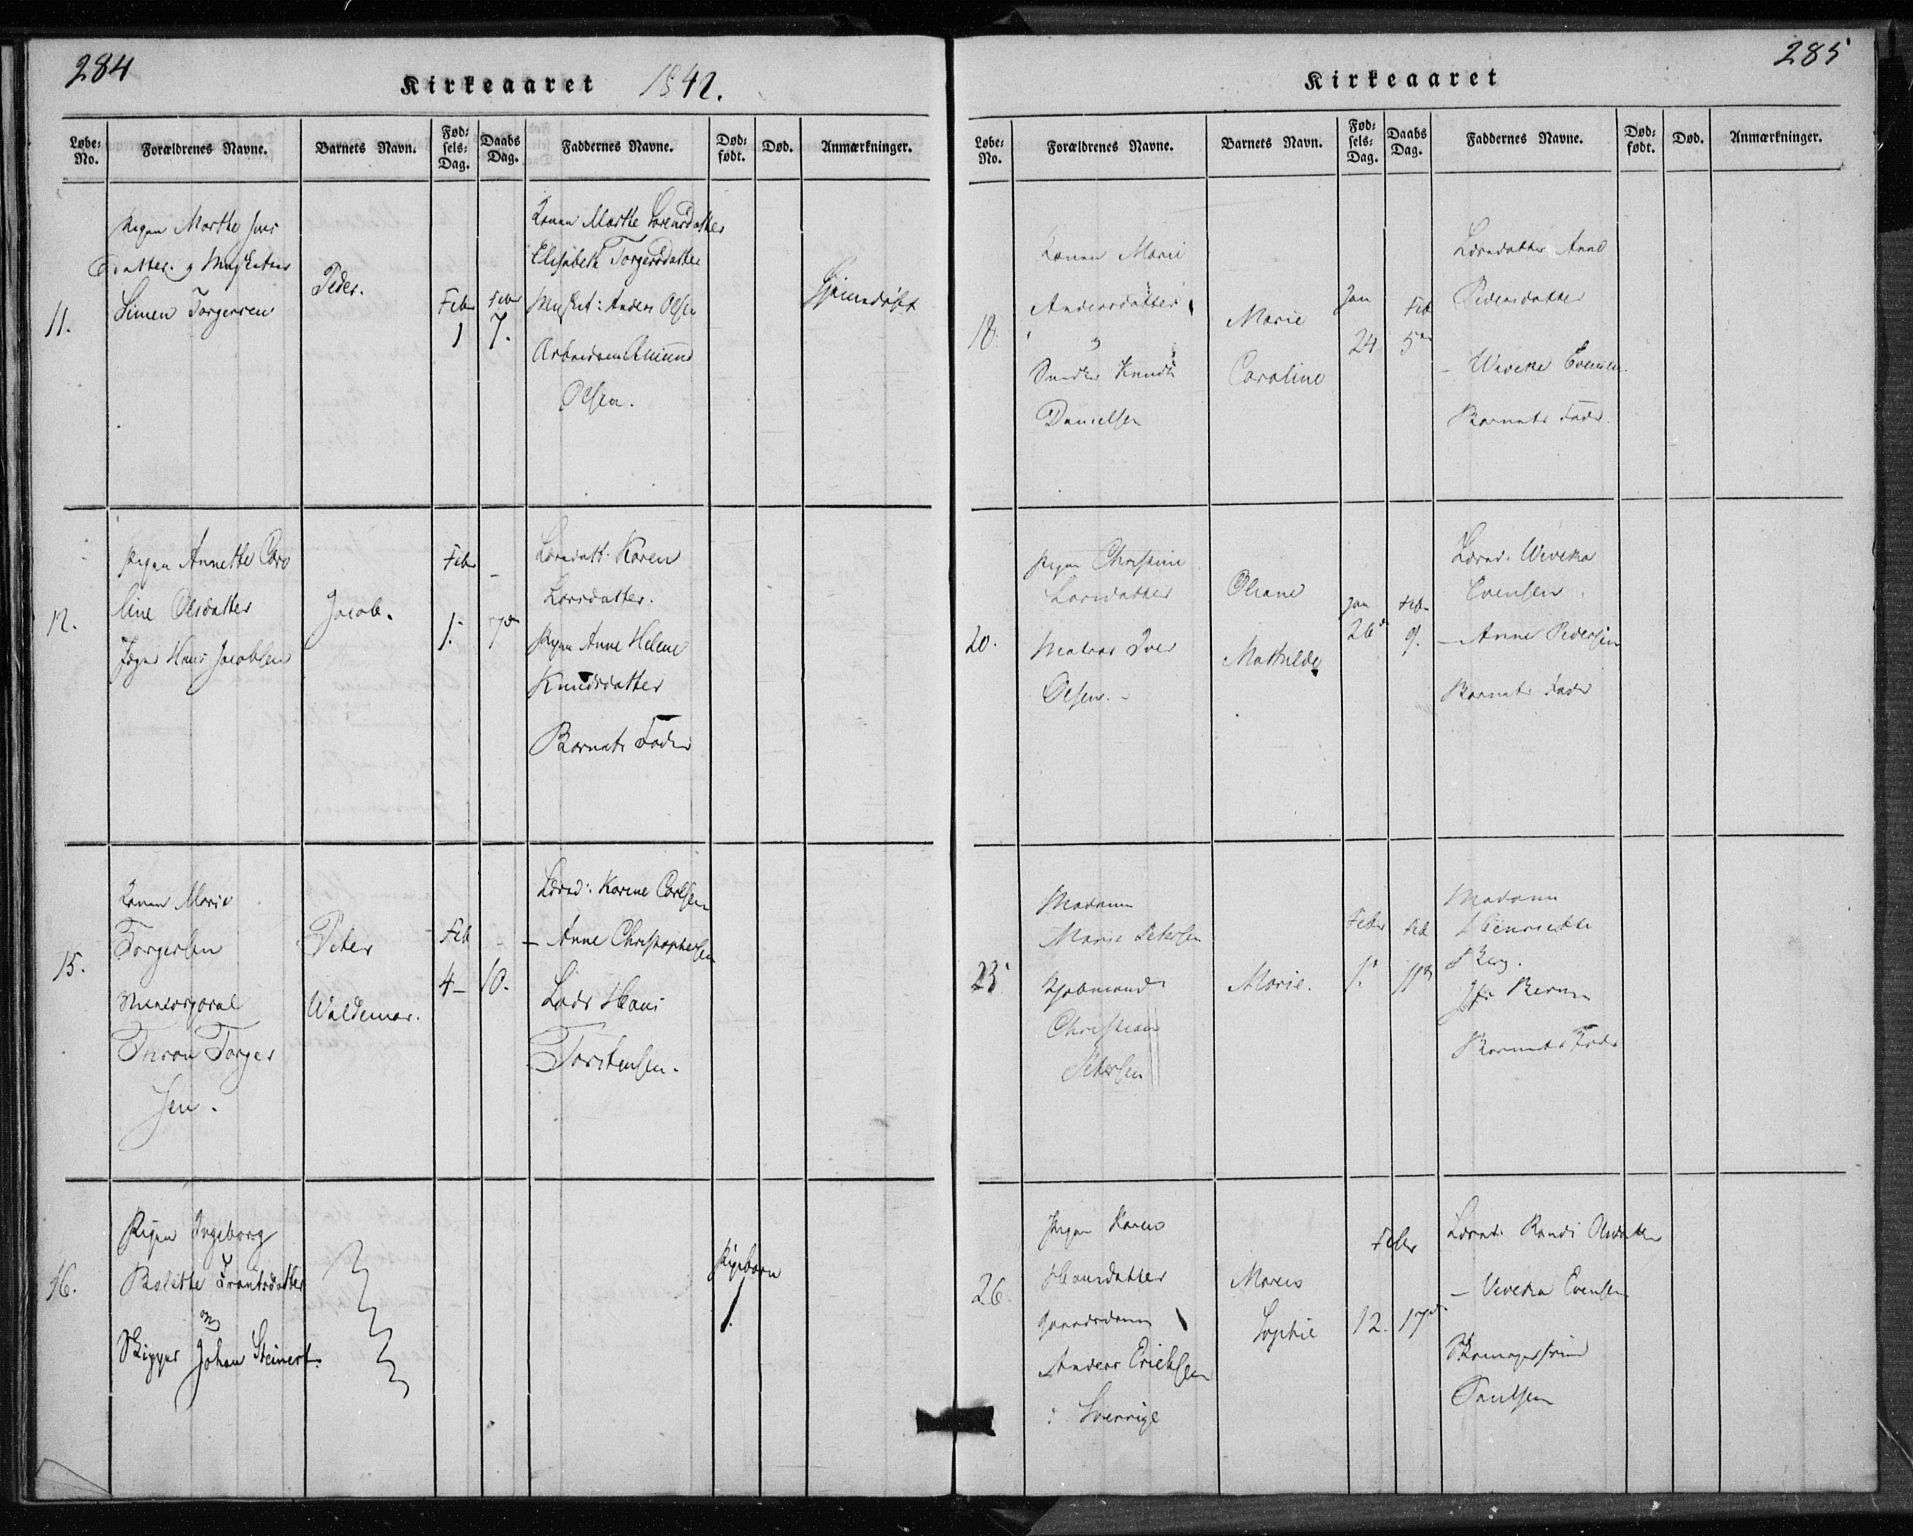 284
Kirkeaaret 1842.
Løbe-No. Forældrenes Navne. Barnets Navn. Fød-sels-Dag. Daabs Dag. Faddernes Navne. Død-født. Død. Anmærkninger.
11.
Pigen Marthe Jens
Datter. g Musketeer
Simen Torgersen
Peder.
Feb
1
Feb
7.
Konen Marthe Lorensdatter
Elisabeth Torgersdatter
Musket: Anders Olsen
Amund
Olsen.
Hjemmedøbt
12.
Pigen Annette Caro
line Olsdatter
Hans Jacobsen
Jacob.
Feb
1.
7de
Karen
Larsdatter.
Pigen Anne Helene
Knudsdatter
Barnets Fader
15.
Konen Marie
Torgersen
Torger
sen.
Peter
Waldemar.
Feb
4–
10.
Karine Carlsen
– Anne Christophersen
Hans
Torstensen.
16.
Pigen Ingeborg
Bolette Frantsdatter
og
Skipper Johan Steinert.
Pigebarn
1.
285
Kirkeaaret
Løbe-No. Forældrenes Navne. Barnets Navn. Fød-sels-Dag. Daabs Dag. Faddernes Navne. Død-født. Død. Anmærkninger.
18.
Konen Marie
Andersdatter
Knudt
Danielsen
Marie
Caroline
Jan
24
Feb
5te
Anne
Pedersdatter
– Wiveka Evensen.
Barnets Fader.
20.
Pigen Christine
Larsdatter
Matros Iver
Olsen. –
Oliane
Mathilde
Jan
26de
Feb
9.
Wiveka
Evensen.
– Anne Pedersen
Barnets Fader
23
Madame
Marie Petersen
Kjøbmand
Christian
Petersen
Marie.
Febr
1.
Feb
11te
Madame
Henriette
Berg.
Barnets Fader
26.
Pigen Karen
Hansdatter
Gaardsdreng
Anders Erichsen
i Sverrige
Maren
Sophie
Febr
12. 17de
Randi Olsdatter
– Viveka Evensen
Skomagersvend
Paulsen